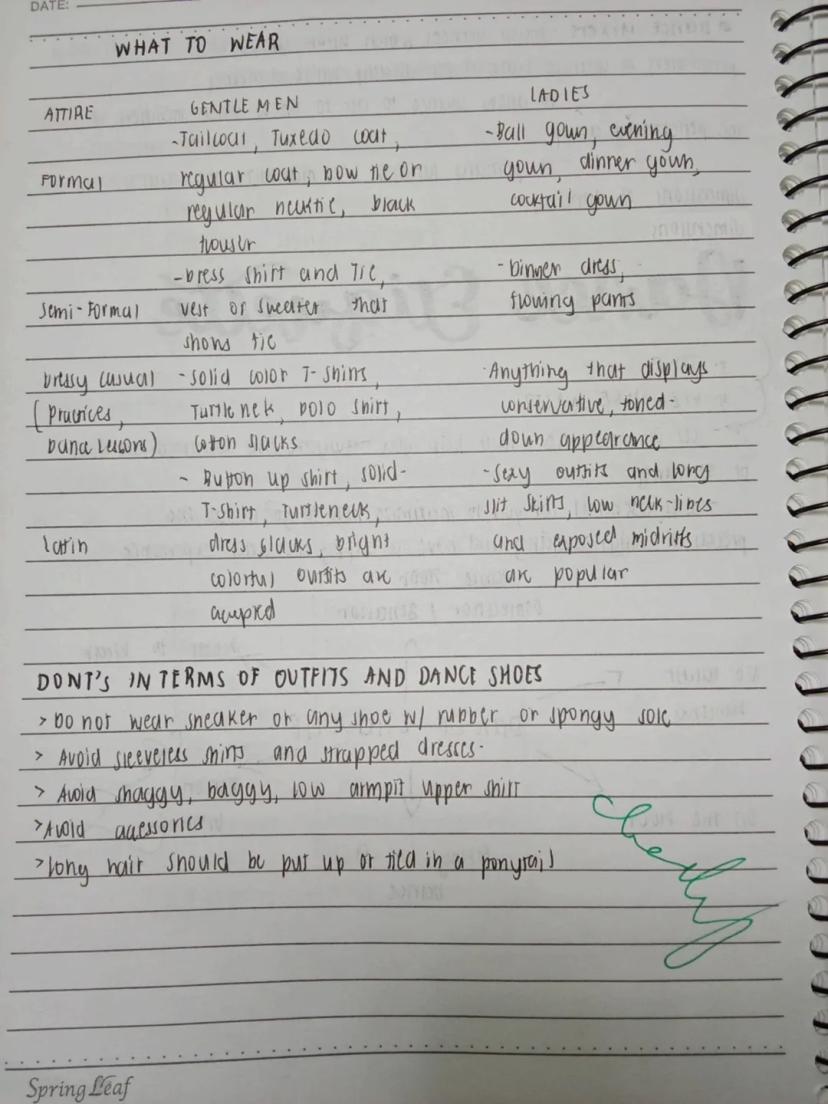 DATE:
WHAT TO WEAR
ATTIRE GENTLEMEN LADIES
-Tailcoat, Tuxedo coat, -Ball gown, evening
Formal regular coat, bow tie or gown, dinner gown,
regular necktie, black cocktail gown
trouser
-Dress shirt and Tie, -Dinner dress,
Semi-Formal vest or sweater that flowing pants
shows tie
Dressy casual -solid color T-shirts, -Anything that displays
(Practices, Turtle nek, polo shirt, conservative, toned-
Dance Lessons) Cotton slacks down appearance
- Button up shirt, solid- -Sexy outfits and long
T-shirt, Turtleneck, slit skirts, low neck-lines
Latin dress slacks, bright and exposed midriffs
colorful outfits are are popular
accepted
DONT'S IN TERMS OF OUTFITS AND DANCE SHOES
> Do not wear sneaker or any shoe w/ rubber or spongy sole
> Avoid sleeveless shirts and strapped dresses.
> Avoid shaggy, baggy, low armpit upper shirt
> Avoid accessories
> Long hair should be put up or tied in a ponytail
Spring Leaf